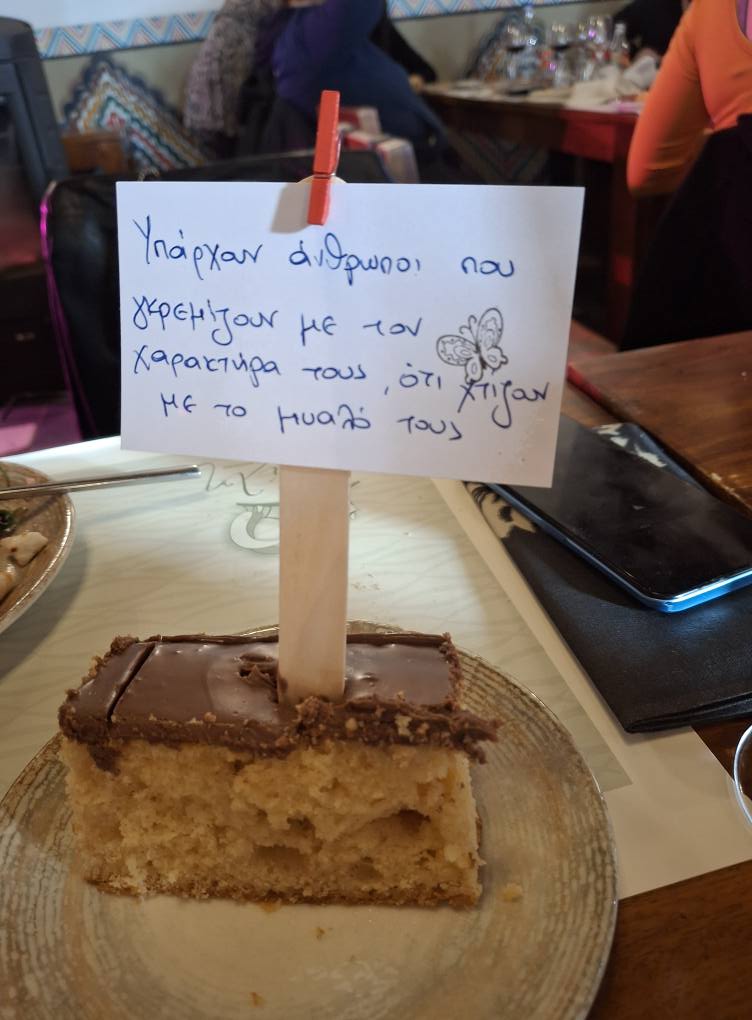 Υπάρχαν άνθρωποι που
γκρεμίζουν με τον
χαρακτήρα τους, ότι χτίζαν
με το μυαλό τους